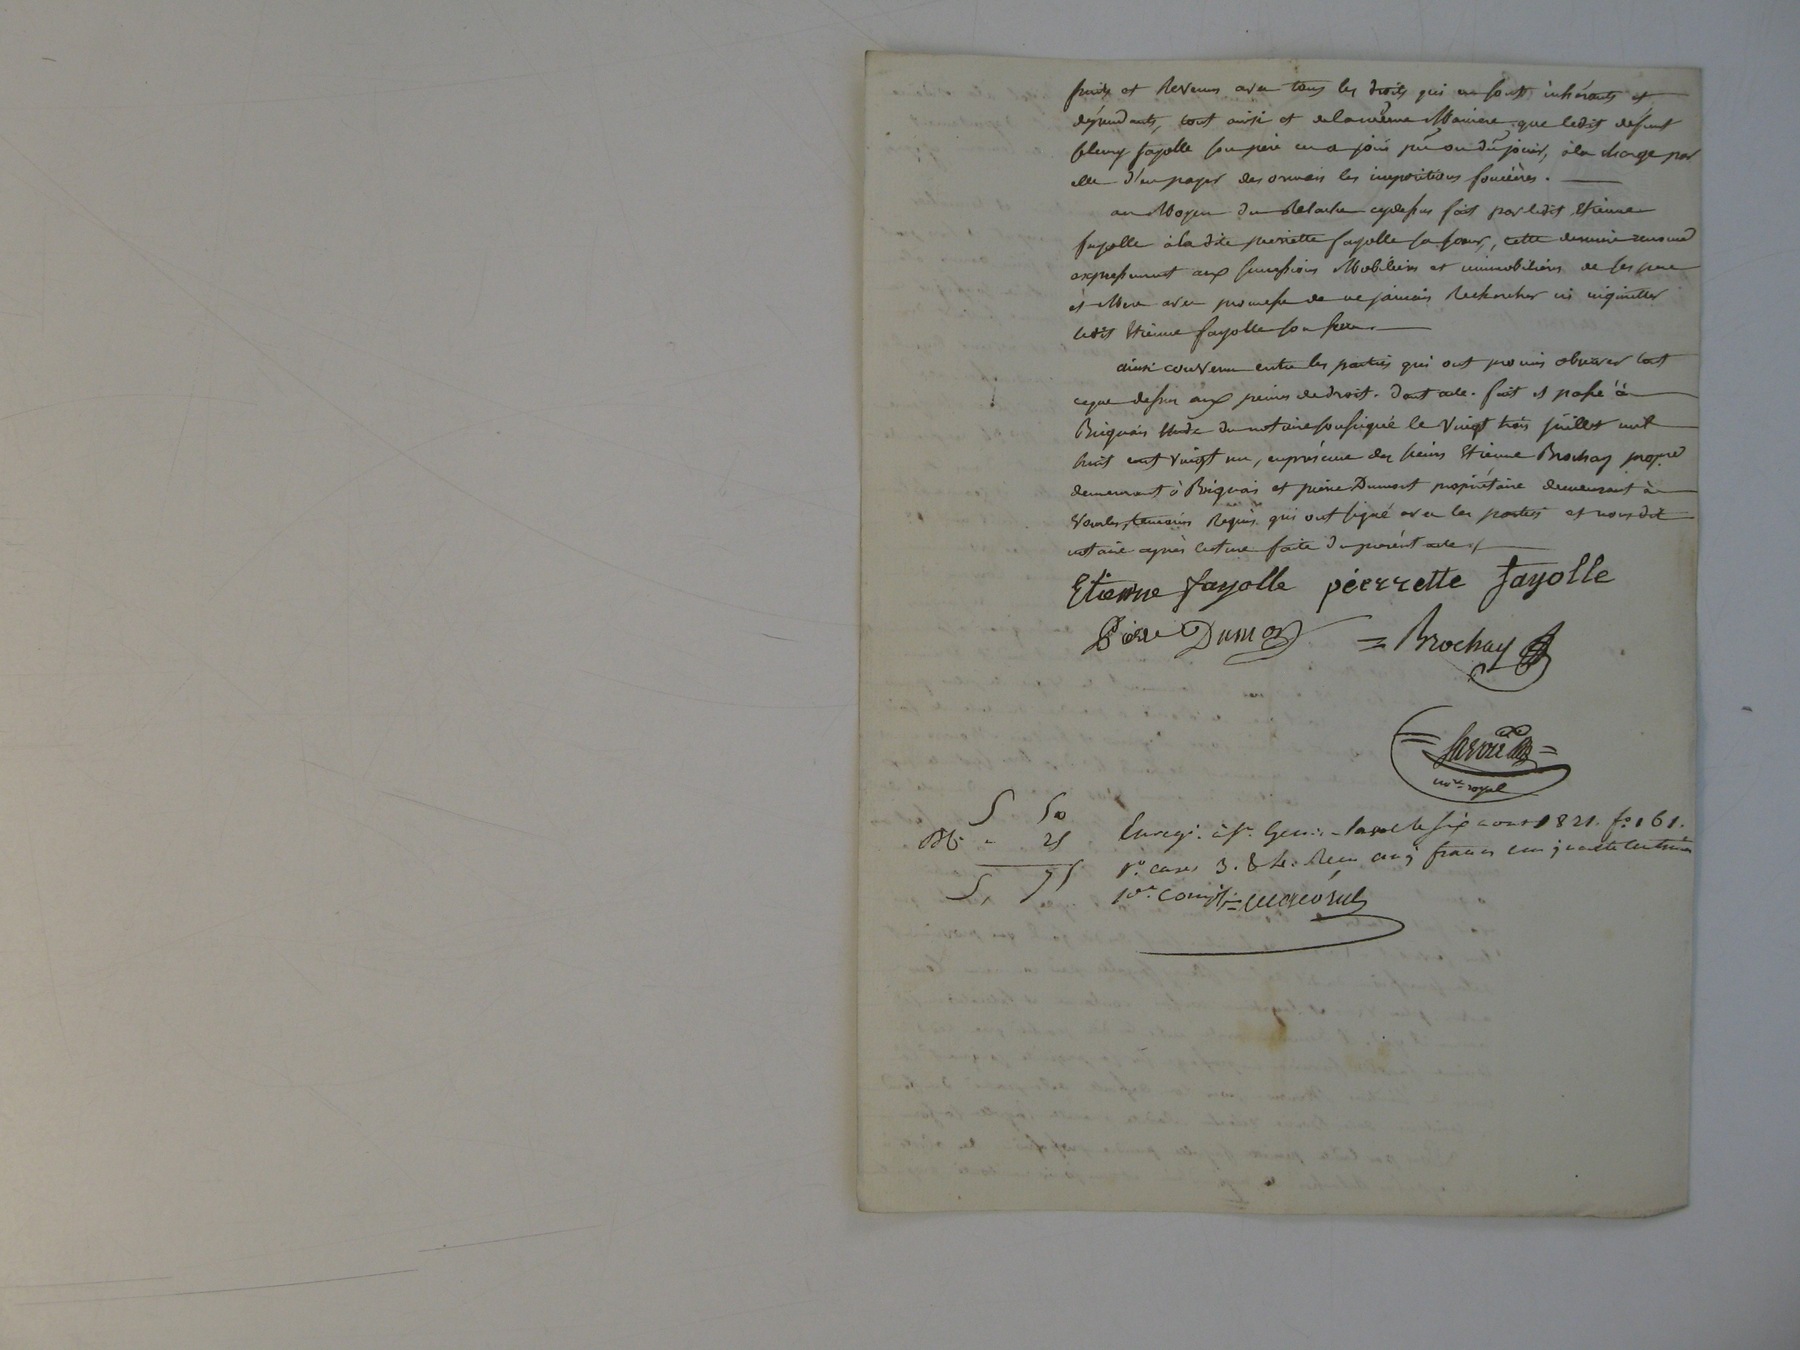 fruits et Revenus avec tous les droits qui en sont inhérents et
dépendants, tout ainsi et de la même Maniere que ledit defunt
fleury fayolle son père en a joui pû ou dû jouir, à la charge par
elle d'en payer des ormais les impositions foncières.
au Moyen du Relache cydessus fait par ledit Etienne
fayolle à la dite pierrette fayolle sa sœur, cette dernière renonce
expressement aux successions Mobiliers et immobiliers de ses pere
et Mere avec promesse de ne jamais Rechercher ni inquietter
ledit Etienne fayolle son frere.
ainsi convenu entre les parties qui ont promis observer tout
ceque dessus aux peines de droit. Dont acte. fait et passé à
Brignais Etude du notaire soussigné le Vingt trois juillet mil
huit cent vingt un, en présence des sieurs Etienne Brochay propre
demeurant à Brignais et pierre Dumont propriétaire demeurant à
Vourles, temoins Requis qui ont signé avec les parties et nous dit
notaire après lecture faite du présent acte
Etienne fayolle péerrette fayolle
Pierre Dumon = Brochay
nore royal
5 50
25
5, 75
Enregt. à St. Genis-Laval le six aout 1821. fo. 161.
ro. cases 3. & 4. Reçu cinq francs cinquante centimes